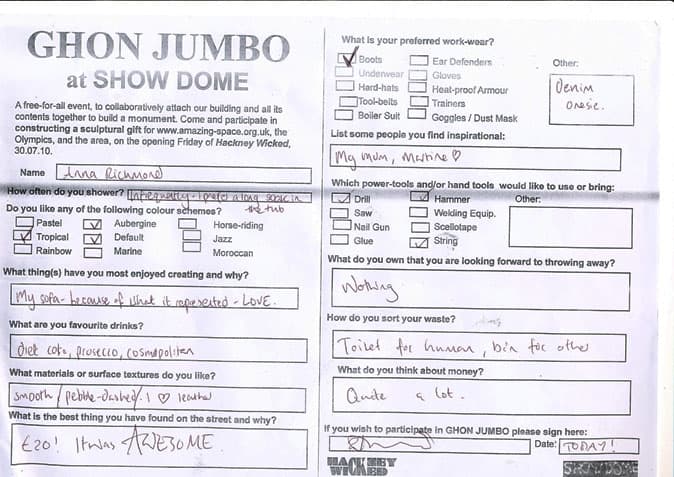 GHON JUMBO
at SHOW DOME
A free-for-all event, to collaboratively attach our building and all its
contents together to build a monument. Come and participate in
constructing a sculptural gift for www.amazing-space.org.uk, the
Olympics, and the area, on the opening Friday of Hackney Wicked,
30.07.10.
Name Anna Richmond
How often do you shower? Infrequently - I prefer a long soak in
the tub
Do you like any of the following colour schemes?
Pastel Aubergine Horse-riding
Tropical Default Jazz
Rainbow Marine Moroccan
What thing(s) have you most enjoyed creating and why?
My sofa - because of what it represented - LOVE.
What are favourite drinks?
diet coke, prosecco, cosmopolitan
What materials or surface textures do you like?
smooth / pebble-dashed / I ♡ leather
What is the best thing you have found on the street and why?
£20! It was AWESOME.
What is your preferred work-wear?
Boots Ear Defenders Other:
Underwear Gloves
Hard-hats Heat-proof Armour
Tool-belts Trainers
Boiler Suit Goggles / Dust Mask
Denim
onesie.
List some people you find inspirational:
My mum, Martine ♡
Which power-tools and/or hand tools would like to use or bring:
Drill Hammer Other:
Saw Welding Equip.
Nail Gun Scellotape
Glue String
What do you own that you are looking forward to throwing away?
Nothing
How do you sort your waste?
Toilet for human, bin for other
What do you think about money?
Quite a lot.
If you wish to participate in GHON JUMBO please sign here:
Date: TODAY!
HACKNEY
WICKED
SHOWDOME